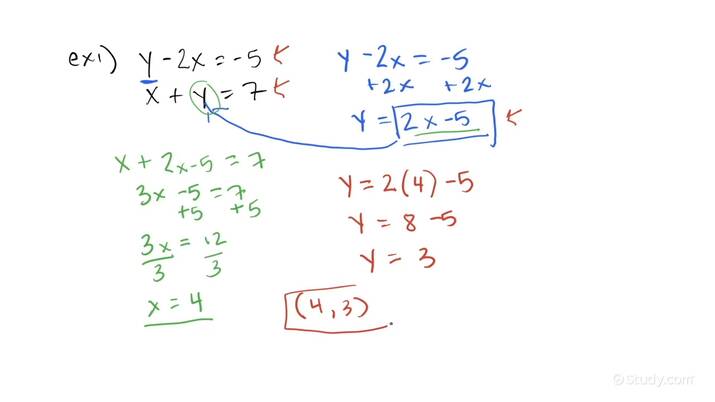 ex1) y - 2x = -5
x + y = 7
y - 2x = -5
+2x +2x
y = 2x - 5
x + 2x - 5 = 7
3x - 5 = 7
+5 +5
3x = 12
3 3
x = 4
y = 2(4) - 5
y = 8 - 5
y = 3
(4, 3)
© Study.com